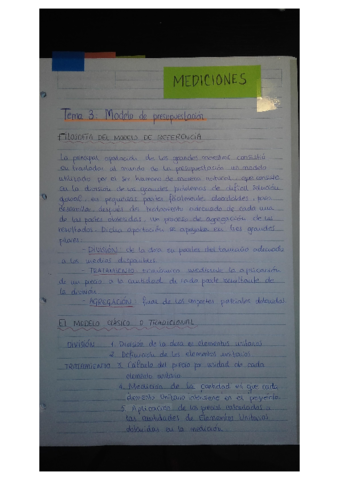 MEDICIONES
Tema 3. Modelo de presupuestación
FILOSOFÍA DEL MODELO DE REFERENCIA
La principal aportación de los grandes maestros consistió
en trasladar al mundo de la presupuestación el modelo
utilizado por el ser humano de manera natural, que consiste
en la división de los grandes problemas de difícil solución
global, en pequeñas partes fácilmente abordables, para
desarrollar después del tratamiento adecuado de cada una
de las partes obtenidas, un proceso de agregación de los
resultados. Dicha aportación se agrupaba en tres grandes
pasos:
- DIVISIÓN: de la obra en partes del tamaño adecuado
a los medios disponibles
- TRATAMIENTO: económico mediante la aplicación
de un precio a la cantidad de cada parte resultante de
la división
- AGREGACIÓN: final de los importes parciales obtenidos
El MODELO CLÁSICO O TRADICIONAL
DIVISIÓN: 1. División de la obra en elementos unitarios
2. Definición de los elementos unitarios
TRATAMIENTO: 3. Cálculo del precio por unidad de cada
elemento unitario
4. Medición de la cantidad en que cada
elemento unitario interviene en el proyecto
5. Aplicación de los precios calculados a
las cantidades de elementos unitarios
obtenidos en la medición.